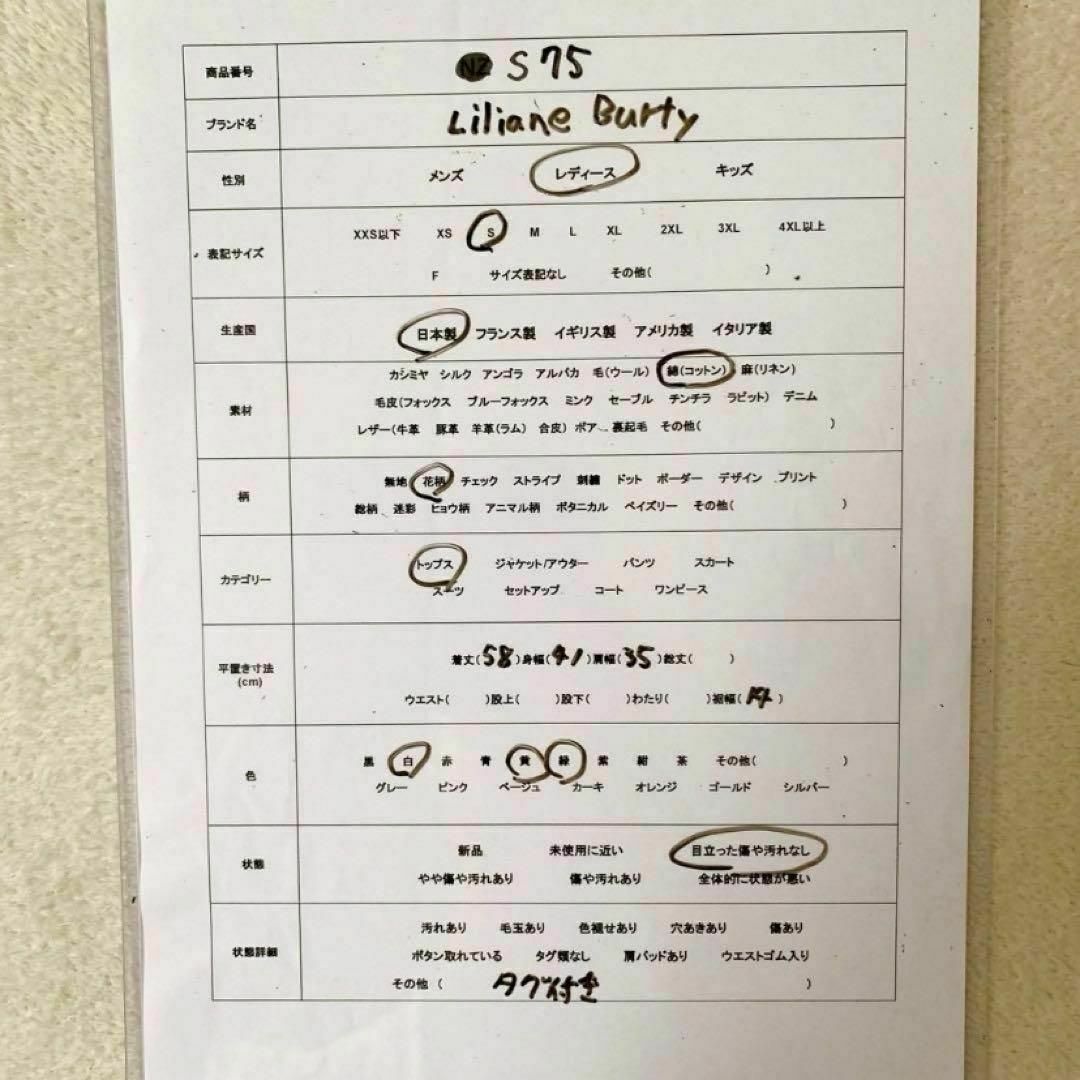 商品番号 NZ S75
ブランド名 Liliane Burty
性別 メンズ レディース キッズ
表記サイズ
XXS以下 XS S M L XL 2XL 3XL 4XL以上
F サイズ表記なし その他( )
生産国 日本製 フランス製 イギリス製 アメリカ製 イタリア製
素材
カシミヤ シルク アンゴラ アルパカ 毛(ウール) 綿(コットン) 麻(リネン)
毛皮(フォックス ブルーフォックス ミンク セーブル チンチラ ラビット) デニム
レザー(牛革 豚革 羊革(ラム) 合皮) ボア 裏起毛 その他( )
柄
無地 花柄 チェック ストライプ 刺繍 ドット ボーダー デザイン プリント
総柄 迷彩 ヒョウ柄 アニマル柄 ボタニカル ペイズリー その他( )
カテゴリー
トップス ジャケット/アウター パンツ スカート
スーツ セットアップ コート ワンピース
平置き寸法
(cm)
着丈(58)身幅(41)肩幅(35)総丈( )
ウエスト( )股上( )股下( )わたり( )裾幅(14)
色
黒 白 赤 青 黄 緑 紫 紺 茶 その他( )
グレー ピンク ベージュ カーキ オレンジ ゴールド シルバー
状態
新品 未使用に近い 目立った傷や汚れなし
やや傷や汚れあり 傷や汚れあり 全体的に状態が悪い
状態詳細
汚れあり 毛玉あり 色褪せあり 穴あきあり 傷あり
ボタン取れている タグ類なし 肩パッドあり ウエストゴム入り
その他 ( タグ付き )